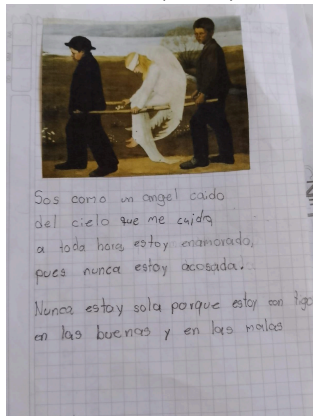 Sos como un angel caido
del cielo que me cuida
a toda hora, estoy enamorado,
pues nunca estoy acosada.
Nunca estoy sola porque estoy con tigo
en las buenas y en las malas